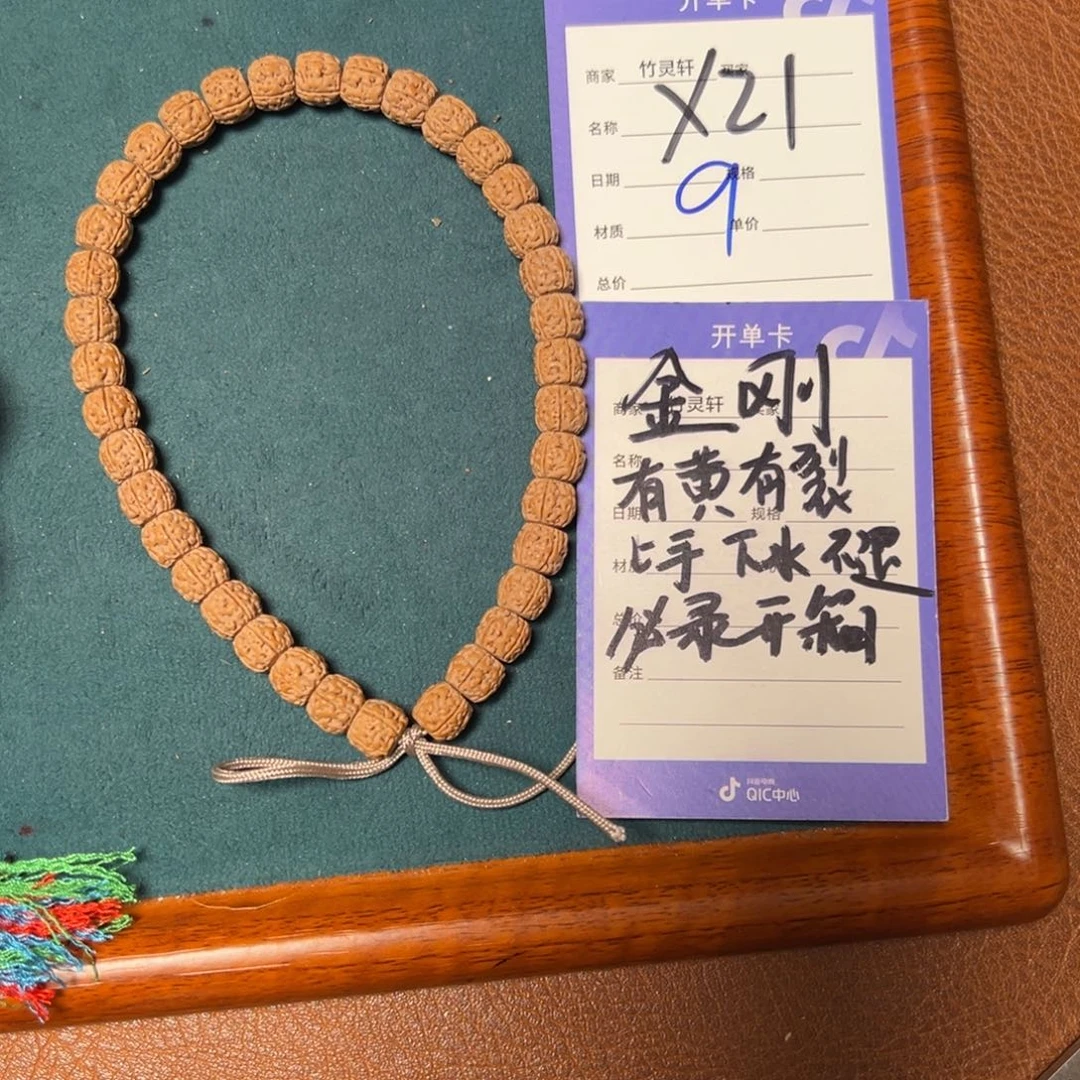 开单卡
商家 竹灵轩 买家
X21
名称
日期 规格
9
材质 单价
总价
开单卡
金刚
商家 竹灵轩 买家
名称
有黄有裂
日期 规格
上手下水不退
材
必录开箱
总价
备注
抖音电商
QIC中心